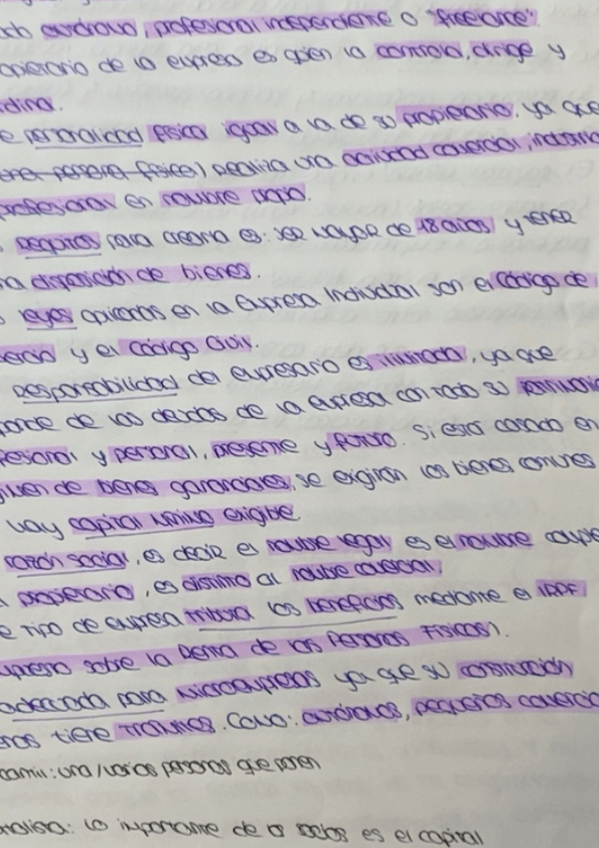 autónomo, profesional independiente o "freelance".
de la empresa es quien la controla, dirige y
personalidad física igual a la de su propietario, ya que
física) realiza una actividad comercial,
profesional en nombre propio.
Requisitos para crearla es: ser mayor de 18 años y tener
disposición de bienes.
leyes en la Empresa Individual son el Código de
y el Código Civil.
Responsabilidad del empresario es ilimitada, ya que
de las deudas de la empresa con todo su
y personal, presente y futuro. Si está casado en
de bienes gananciales, se exigirán los bienes comunes
hay capital mínimo exigible
razón social, es decir el nombre legal es el nombre
propietario, es distinto al nombre comercial.
tipo de empresa tributa los beneficios mediante el IRPF
sobre la Renta de las Personas Físicas).
adecuada para microempresas ya que su constitución
tiene trámites. Como: autónomos, pequeños
una/varias personas que ponen
lo importante de los socios es el capital